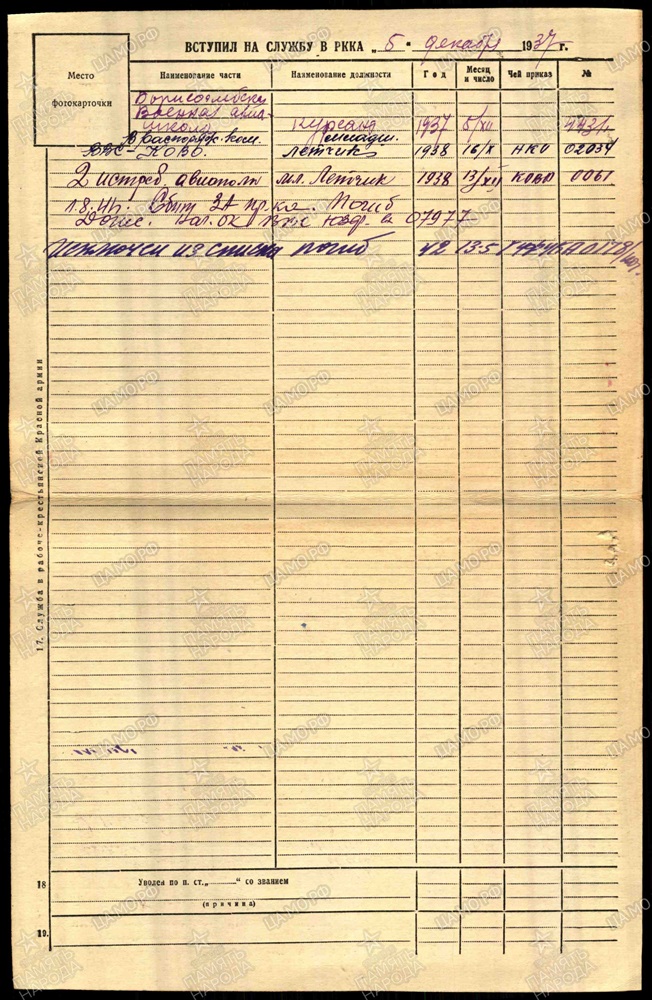 ВСТУПИЛ НА СЛУЖБУ В РККА „ 5 " декабря 1937 г.
Место фотокарточки
Наименование части Наименование должности Год Месяц и число Чей приказ №
Борисоглебская
Военная авиа-
школа Курсант 1937 5/XII
В распоряж. ком. младш.
ВВС-КОВО. Летчик 1938 16/X НКО 02034
2 истреб. авиополк мл. Летчик 1938 13/XII КОВО 0061
Погиб
Донес. 07977
Исключен из списка погиб 42 13.5
17. Служба в рабоче-крестьянской Красной армии
18 Уволен по п. ст. „ " со званием
(причина)
19.
ЦАМО.РФ
ПАМЯТЬ НАРОДА